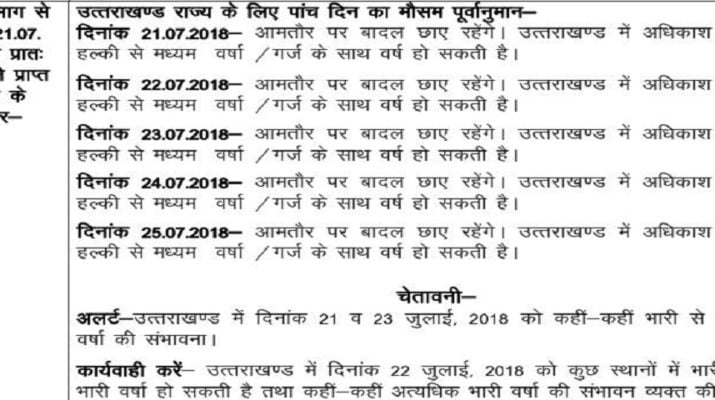 भाग से
21.07.
प्रातः
प्राप्त
के
र–
उत्तराखण्ड राज्य के लिए पांच दिन का मौसम पूर्वानुमान–
दिनांक 21.07.2018– आमतौर पर बादल छाए रहेंगे। उत्तराखण्ड में अधिकाश
हल्की से मध्यम वर्षा /गर्ज के साथ वर्ष हो सकती है।
दिनांक 22.07.2018– आमतौर पर बादल छाए रहेंगे। उत्तराखण्ड में अधिकाश
हल्की से मध्यम वर्षा /गर्ज के साथ वर्ष हो सकती है।
दिनांक 23.07.2018– आमतौर पर बादल छाए रहेंगे। उत्तराखण्ड में अधिकाश
हल्की से मध्यम वर्षा /गर्ज के साथ वर्ष हो सकती है।
दिनांक 24.07.2018– आमतौर पर बादल छाए रहेंगे। उत्तराखण्ड में अधिकाश
हल्की से मध्यम वर्षा /गर्ज के साथ वर्ष हो सकती है।
दिनांक 25.07.2018– आमतौर पर बादल छाए रहेंगे। उत्तराखण्ड में अधिकाश
हल्की से मध्यम वर्षा /गर्ज के साथ वर्ष हो सकती है।
चेतावनी–
अलर्ट–उत्तराखण्ड में दिनांक 21 व 23 जुलाई, 2018 को कहीं–कहीं भारी से
वर्षा की संभावना।
कार्यवाही करें– उत्तराखण्ड में दिनांक 22 जुलाई, 2018 को कुछ स्थानों में भारी
भारी वर्षा हो सकती है तथा कहीं–कहीं अत्यधिक भारी वर्षा की संभावन व्यक्त की